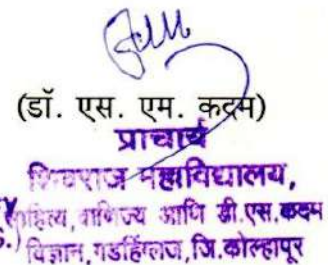 (डॉ. एस. एम. कदम)
प्राचार्य
शिवराज महाविद्यालय,
साहित्य, वाणिज्य आणि डी.एस.कदम
विज्ञान, गडहिंग्लज, जि.कोल्हापूर